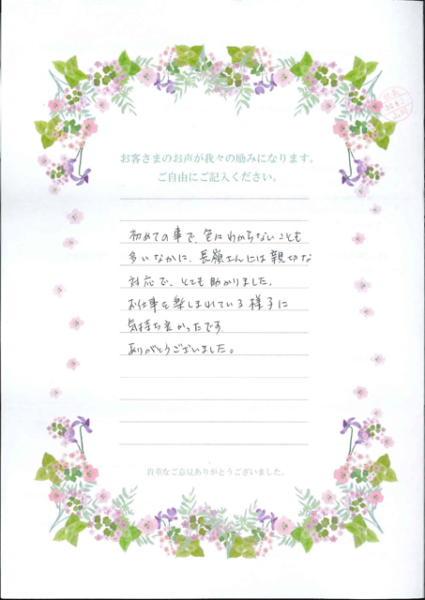 お客さまのお声が我々の励みになります。
ご自由にご記入ください。
初めての事で、色々わからないことも
多いなかに、長嶺さんには親切な
対応で、とても助かりました。
お仕事を楽しまれている様子に
気持ち良かったです
ありがとうございました。
貴重なご意見ありがとうございました。